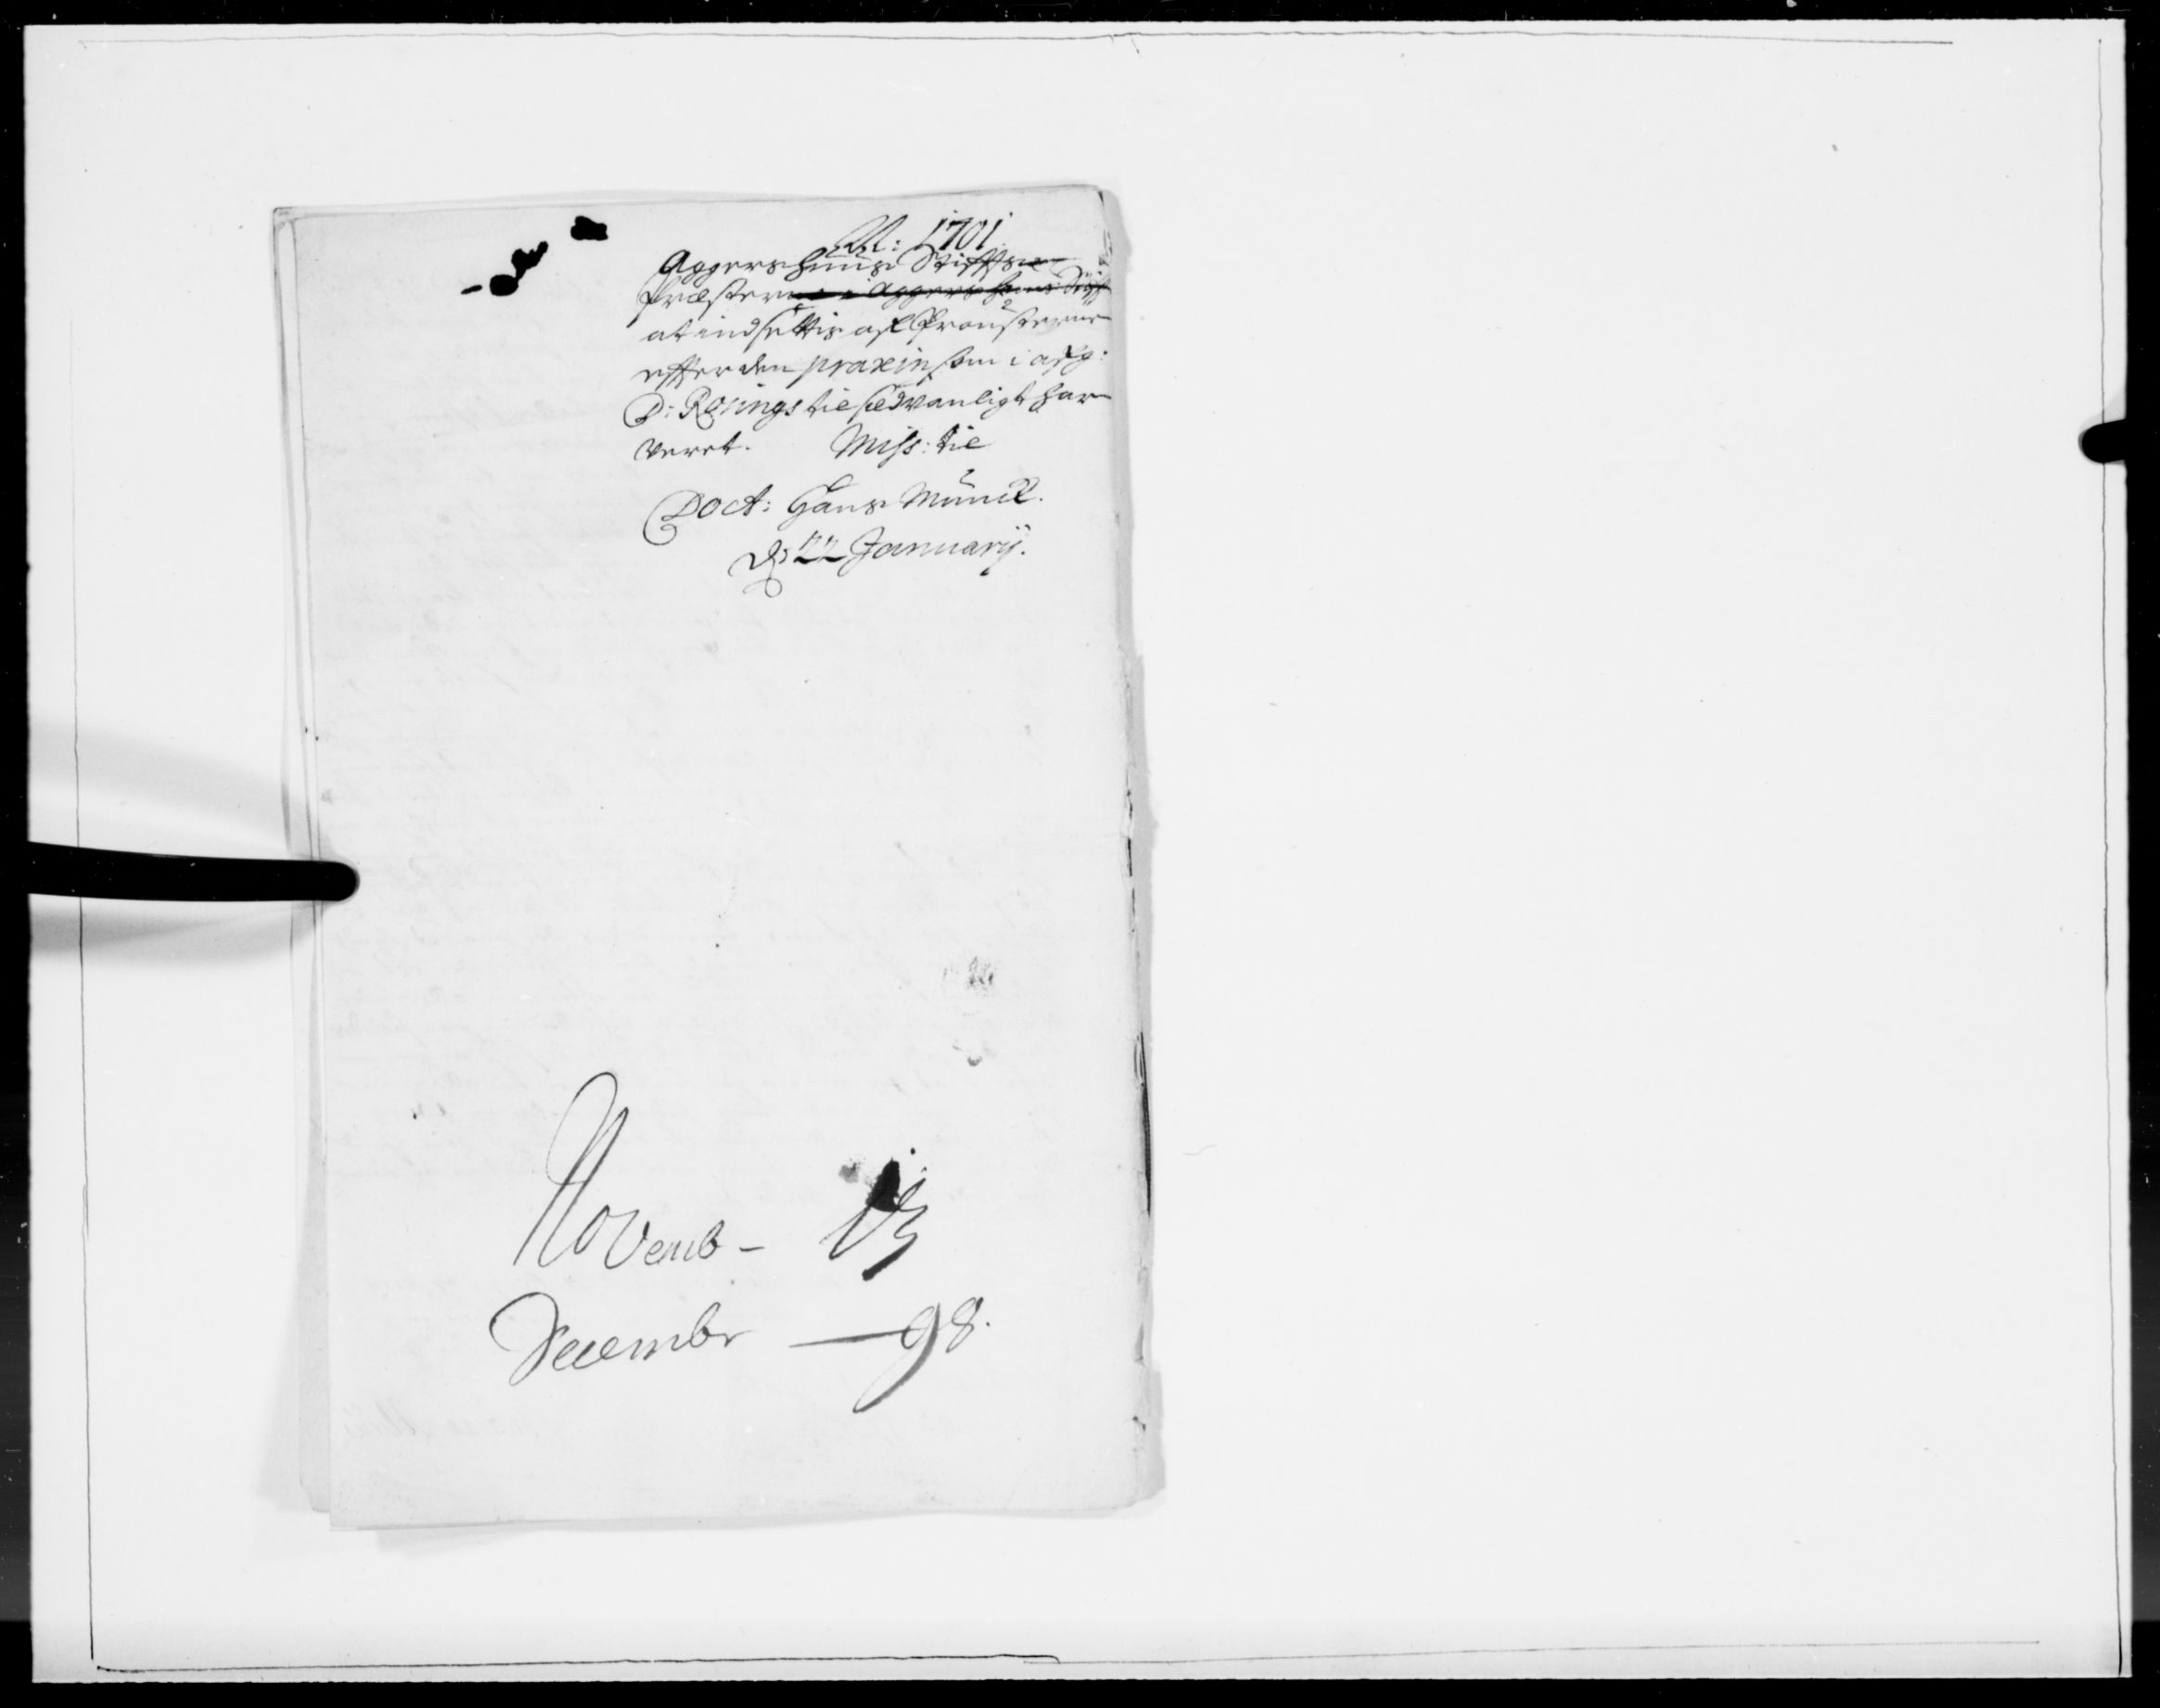 1701
Aggershuus Stiffts
Præsterne i Aggershuus Stift
at indsættis aff Prousterne
effter den praxin som i afg:
D: Rosings tid sædvanligt har
veret. Miss: til
Doct: Hans Munck.
d: 22 Januarij.
Novemb-
December — 98.